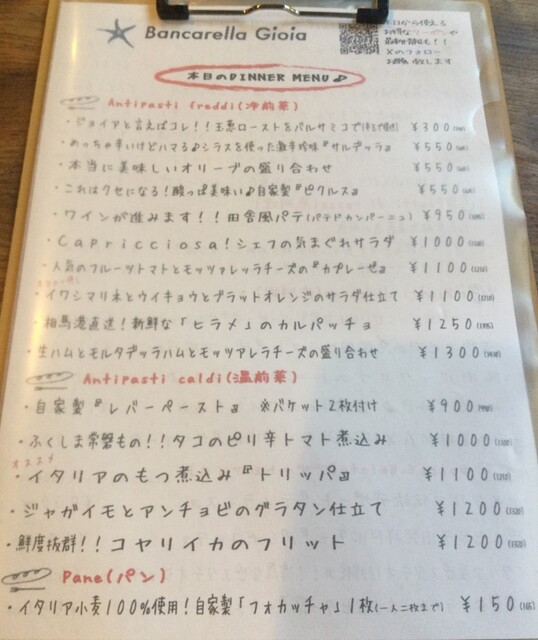 Bancarella Gioia
お得なクーポンや
Xのフォロー
お願い致します
本日のDINNER MENU♪
Antipasti freddi(冷前菜)
・ジョイアと言えばコレ!!玉葱ローストをバルサミコで ¥300
・めっちゃ辛いけどハマる♪シラスを使った激辛珍味『サルデッラ』 ¥550
・本当に美味しいオリーブの盛り合わせ ¥550
・これはクセになる!酸っぱ美味しい♪自家製『ピクルス』 ¥550
・ワインが進みます!!田舎風パテ(パテドカンパーニュ) ¥950
・Capricciosa!シェフの気まぐれサラダ ¥1000
・人気のフルーツトマトとモッツァレッラチーズの『カプレーゼ』 ¥1100(1210)
・イワシマリネとウイキョウとブラットオレンジのサラダ仕立て ¥1100(1210)
・相馬港直送!新鮮な「ヒラメ」のカルパッチョ ¥1250
・生ハムとモルタデッラハムとモッツァレラチーズの盛り合わせ ¥1300(1430)
Antipasti caldi(温前菜)
・自家製『レバーペースト』 ※バケット2枚付け ¥900(990)
・ふくしま常磐もの!!タコのピリ辛トマト煮込み ¥1000(1100)
オススメ
・イタリアのもつ煮込み『トリッパ』 ¥1100(1210)
・ジャガイモとアンチョビのグラタン仕立て ¥1200(1320)
・鮮度抜群!!コヤリイカのフリット ¥1200(1320)
Pane(パン)
・イタリア小麦100%使用!自家製「フォカッチャ」1枚(一人二枚まで) ¥150(165)